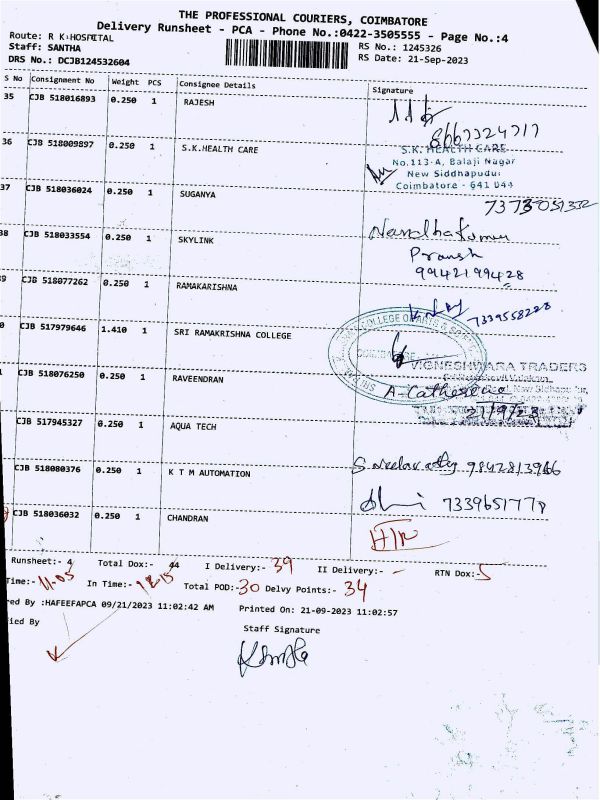 THE PROFESSIONAL COURIERS, COIMBATORE
Delivery Runsheet - PCA - Phone No.:0422-3505555 - Page No.:4
Route: R K HOSPITAL
RS No.: 1245326
Staff: SANTHA
RS Date: 21-Sep-2023
DRS No.: DCJB124532604
S No Consignment No Weight PCS Consignee Details Signature
35 CJB 518016893 0.250 1 RAJESH
8667324717
36 CJB 518009897 0.250 1 S.K.HEALTH CARE
S.K. HEALTH CARE
No.113-A, Balaji Nagar
New Siddhapudur
Coimbatore - 641 044
37 CJB 518036024 0.250 1 SUGANYA
38 CJB 518033554 0.250 1 SKYLINK
Nandhakumar
9942199428
39 CJB 518077262 0.250 1 RAMAKARISHNA
7339558228
0 CJB 517979646 1.410 1 SRI RAMAKRISHNA COLLEGE
COLLEGE OF ARTS & 
COIMBATORE
VIGNESHWARA TRADERS
CJB 518076250 0.250 1 RAVEENDRAN
CJB 517945327 0.250 1 AQUA TECH
9842813966
CJB 518080376 0.250 1 K T M AUTOMATION
CJB 518036032 0.250 1 CHANDRAN
Runsheet:- 4 Total Dox:- 44 I Delivery:- 39 II Delivery:- - RTN Dox:- 5
Time:- 11-05 In Time:- 18-15 Total POD:- 30 Delvy Points:- 34
red By :HAFEEFAPCA 09/21/2023 11:02:42 AM Printed On: 21-09-2023 11:02:57
ied By
Staff Signature